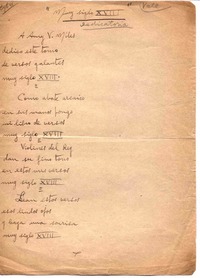 "Muy siglo XVIII"
Dedicatoria
A Amy V. Miles
dedico este tomo
de versos galantes
muy siglo XVIII
Como abate
en sus manos pongo
mi libro de versos
muy siglo XVIII
Violines del Rey
dan su fino tono
en estos mis versos
muy siglo XVIII
Lean estos versos
esos lindos ojos
y haga una sonrisa
muy siglo XVIII